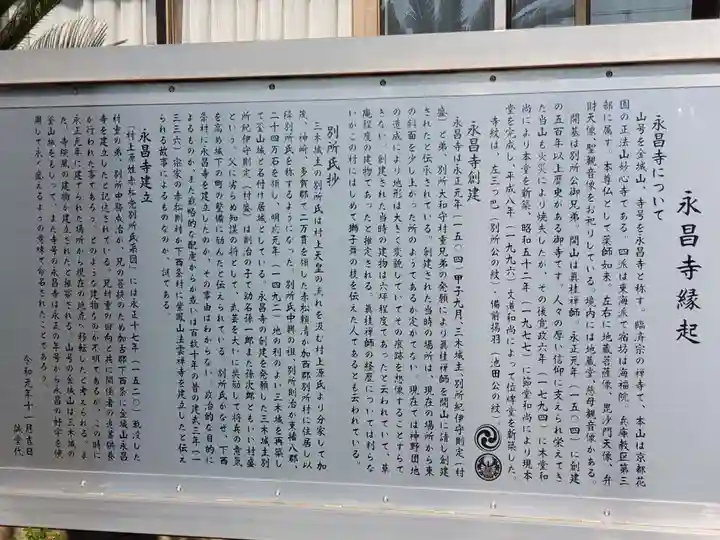 永昌寺縁起
永昌寺について
山号を金城山、寺号を永昌寺と称す。臨済宗の禅寺で、本山は京都花
園の正法山妙心寺である。四派は東海派で宿坊は海福院、兵庫教区第三
部に属す。本尊仏として薬師如来。左右に地蔵菩薩像、毘沙門天像、弁
財天像、聖観音像をお祀りしている。境内には地蔵堂、慈母観音像がある。
開基は別所公御兄弟。開山は眞桂禅師。永正元年(一五〇四)に創建
の五百年以上歴史がある御寺です。人々の厚い信仰に支えられ栄えてき
た当山も火災により焼失したが、その後寛政六年(一七九四)に木堂和
尚により本堂を新築、昭和五十二年(一九七七)に
堂を完成し、平成八年(一九九六)文道和尚によって位牌堂を新築した。
寺紋は、左三つ巴(別所公の紋)、備前揚羽(池田公の紋)
永昌寺創建
永昌寺は永正元年(一五〇四)甲子九月、三木城主、別所紀伊守則定(村
盛)と弟、別所大和守村童兄弟の発願により眞桂禅師を開山に請し創建
されたと伝承されている。創建された当時の場所は、現在の場所から東
の斜面を少し上がった所のようであるが定かでない。現在では神野団地
の造成により地形は大きく変貌していてその痕跡を想像することすらで
きない。創建された当時の建物は六坪程度であったと云われていて、草
庵程度の建物であったと推定される。眞桂禅師の経歴については判らな
いがこの村にはじめて獅子舞の技を伝えた人であるとも云われている。
別所氏抄
三木城主の別所氏は村上天皇の流れを汲む村上源氏より分家して加
茂、神崎、多賀郡で二万貫を領した赤松頼清が加西郡別所村に住居し以
降別所氏を称するようになった。別所氏中興の祖、別所則治が東播八郡
二十四万石を領し、明応元年(一四九二)地の利のよい三木城を再築し
て釜山城と名付け居城としている。永昌寺の創建を発願した三木城主別
所紀伊守則定(村盛)は則治の子で幼名孫一郎また孫次郎ともいい村盛
という。父に劣らぬ知謀の将として、武芸を大いに奨励して将兵の意気
を高め城下の町の整備に励んだと伝えられている。別所氏がなぜ、下西
条村に永昌寺を建立したのか、その事由はわからない。政治的な目的に
よるものか、また戦略的な配慮からか或いは百数十年の昔の建武三年(一
三三六)宗家の赤松則村が下西条村に紫鳳山法雲禅寺を建立したと伝え
られる故事によるものなのか、謎である。
永昌寺建立
「村上源姓赤松庶別所氏系図」には永正十七年(一五二〇)戦没した
村童の弟、別所中務成治が、兄の菩提のため加古郡下西条に金城山永昌
寺を建立したと記述されている。兄村童の回向と共に関係者の追善供養
が行われた事であろうが、どのような建物なのか不明であるが、この時に
永正元年に建てられた場所から現在の地点へ移動したと考えられる。ま
た、寺院風の建物が建立されたと推察される。山号の金城山は三木城の
釜山城をもじって、また寺号の永昌寺は永正の年号から永昌の好字を使
用して永く栄えるようの意味で命名されたことであろう。
令和元年十一月吉日
誠堂代